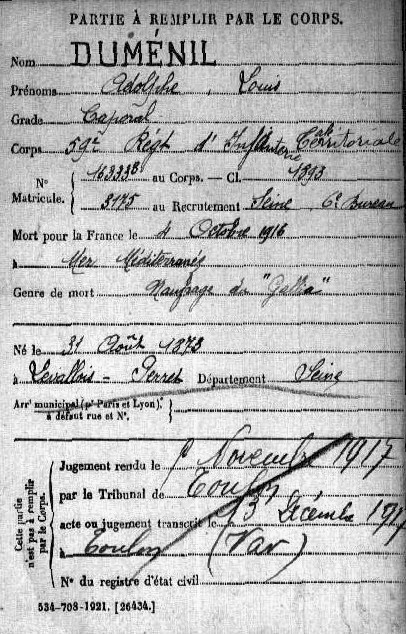 PARTIE À REMPLIR PAR LE CORPS.
Nom DUMÉNIL
Prénoms Adolphe, Louis
Grade Caporal
Corps 59e Régt d'Infanterie Territoriale
N° Matricule. { 16333B au Corps. — Cl. 1893
3175 au Recrutement Seine 6e Bureau
Mort pour la France le 4 Octobre 1916
à Mer Méditerranée
Genre de mort Naufrage du "Gallia"
Né le 31 Août 1873
à Levallois-Perret Département Seine
Arrt municipal (pr Paris et Lyon), à défaut rue et N°. {
Cette partie n'est pas à remplir par le Corps.
Jugement rendu le Novembre 1917
par le Tribunal de Toulon
acte ou jugement transcrit le 13 Décembre 1917
à Toulon (Var)
N° du registre d'état civil
534-708-1921. [26434.]